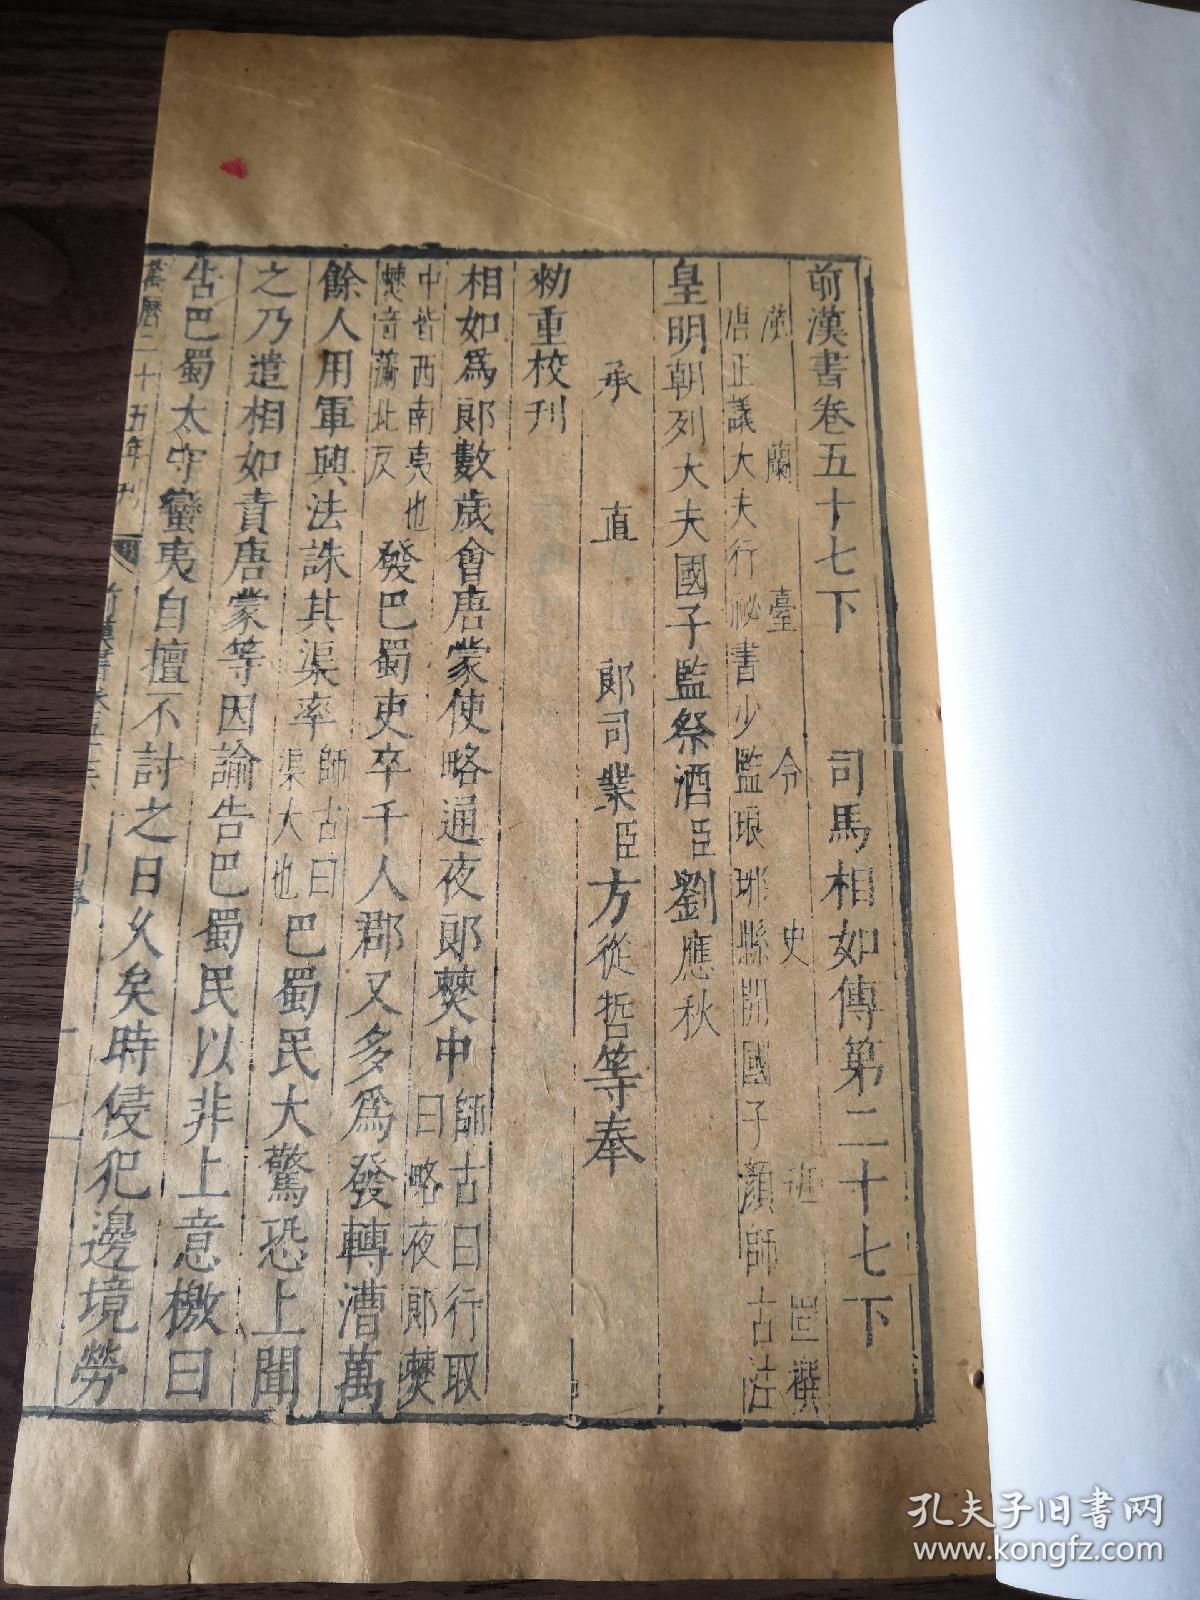 前漢書卷五十七下　司馬相如傳第二十七下
漢蘭臺令史班固撰
唐正議大夫行祕書少監琅琊縣開國子顏師古注
皇明朝列大夫國子監祭酒臣劉應秋
承直郞司業臣方從哲等奉
勑重校刊
相如爲郞數歲會唐蒙使略通夜郞僰中師古曰行取曰略夜郞僰
中皆西南夷也僰音蒲北反發巴蜀吏卒千人郡又多爲發轉漕萬
餘人用軍興法誅其渠率師古曰渠大也巴蜀民大驚恐上聞
之乃遣相如責唐蒙等因諭告巴蜀民以非上意檄曰
告巴蜀太守蠻夷自擅不討之日久矣時侵犯邊境勞
萬曆二十五年刊
前漢書卷五十七
孔夫子旧书网
www.kongfz.com